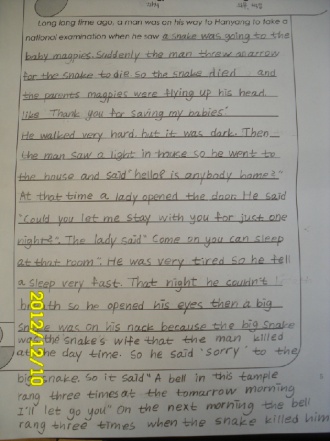 Long long time ago, a man was on his way to Hanyang to take a
national examination when he saw a snake was going to the
baby magpies. Suddenly the man threw an arrow
for the snake to die so the snake died and
the parents magpies were flying up his head
like "Thank you for saving my babies"
He walked very hard. but it was dark. Then
the man saw a light in house so he went to
the house and said "hello? is anybody home?"
At that time a lady opened the door. He said
"Could you let me stay with you for just one
night?". The lady said "Come on you can sleep
at that room". He was very tired so he fell
a sleep very fast. That night he couldn't
so he opened his eyes then a big
snake was on his nack because the big snake
was the snake's wife that the man killed
at the day time. So he said 'sorry' to the
big snake. So it said "A bell in this tample
rang three times at the tomarrow morning
I'll let go you" On the next morning the bell
rang three times when the snake killed him
2012/12/10